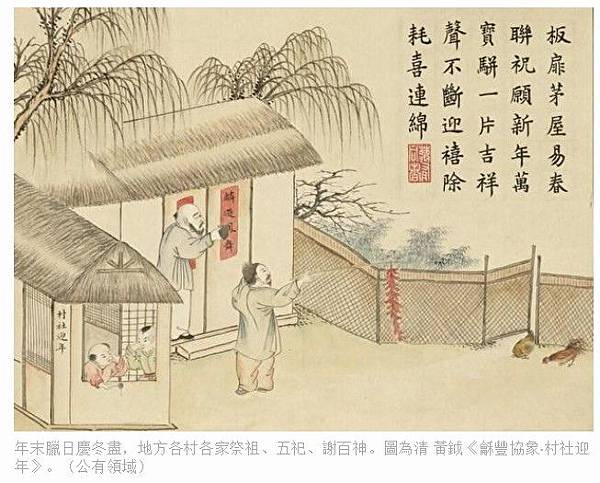 板扉茅屋易春
聯祝願新年萬
寶駢一片吉祥
聲不斷迎禧除
耗喜連綿
麟遊鳳舞
村社迎年
年末臘日慶冬盡，地方各村各家祭祖、五祀、謝百神。圖為清 黃鉞《龢豐協象‧村社迎
年》。（公有領域）